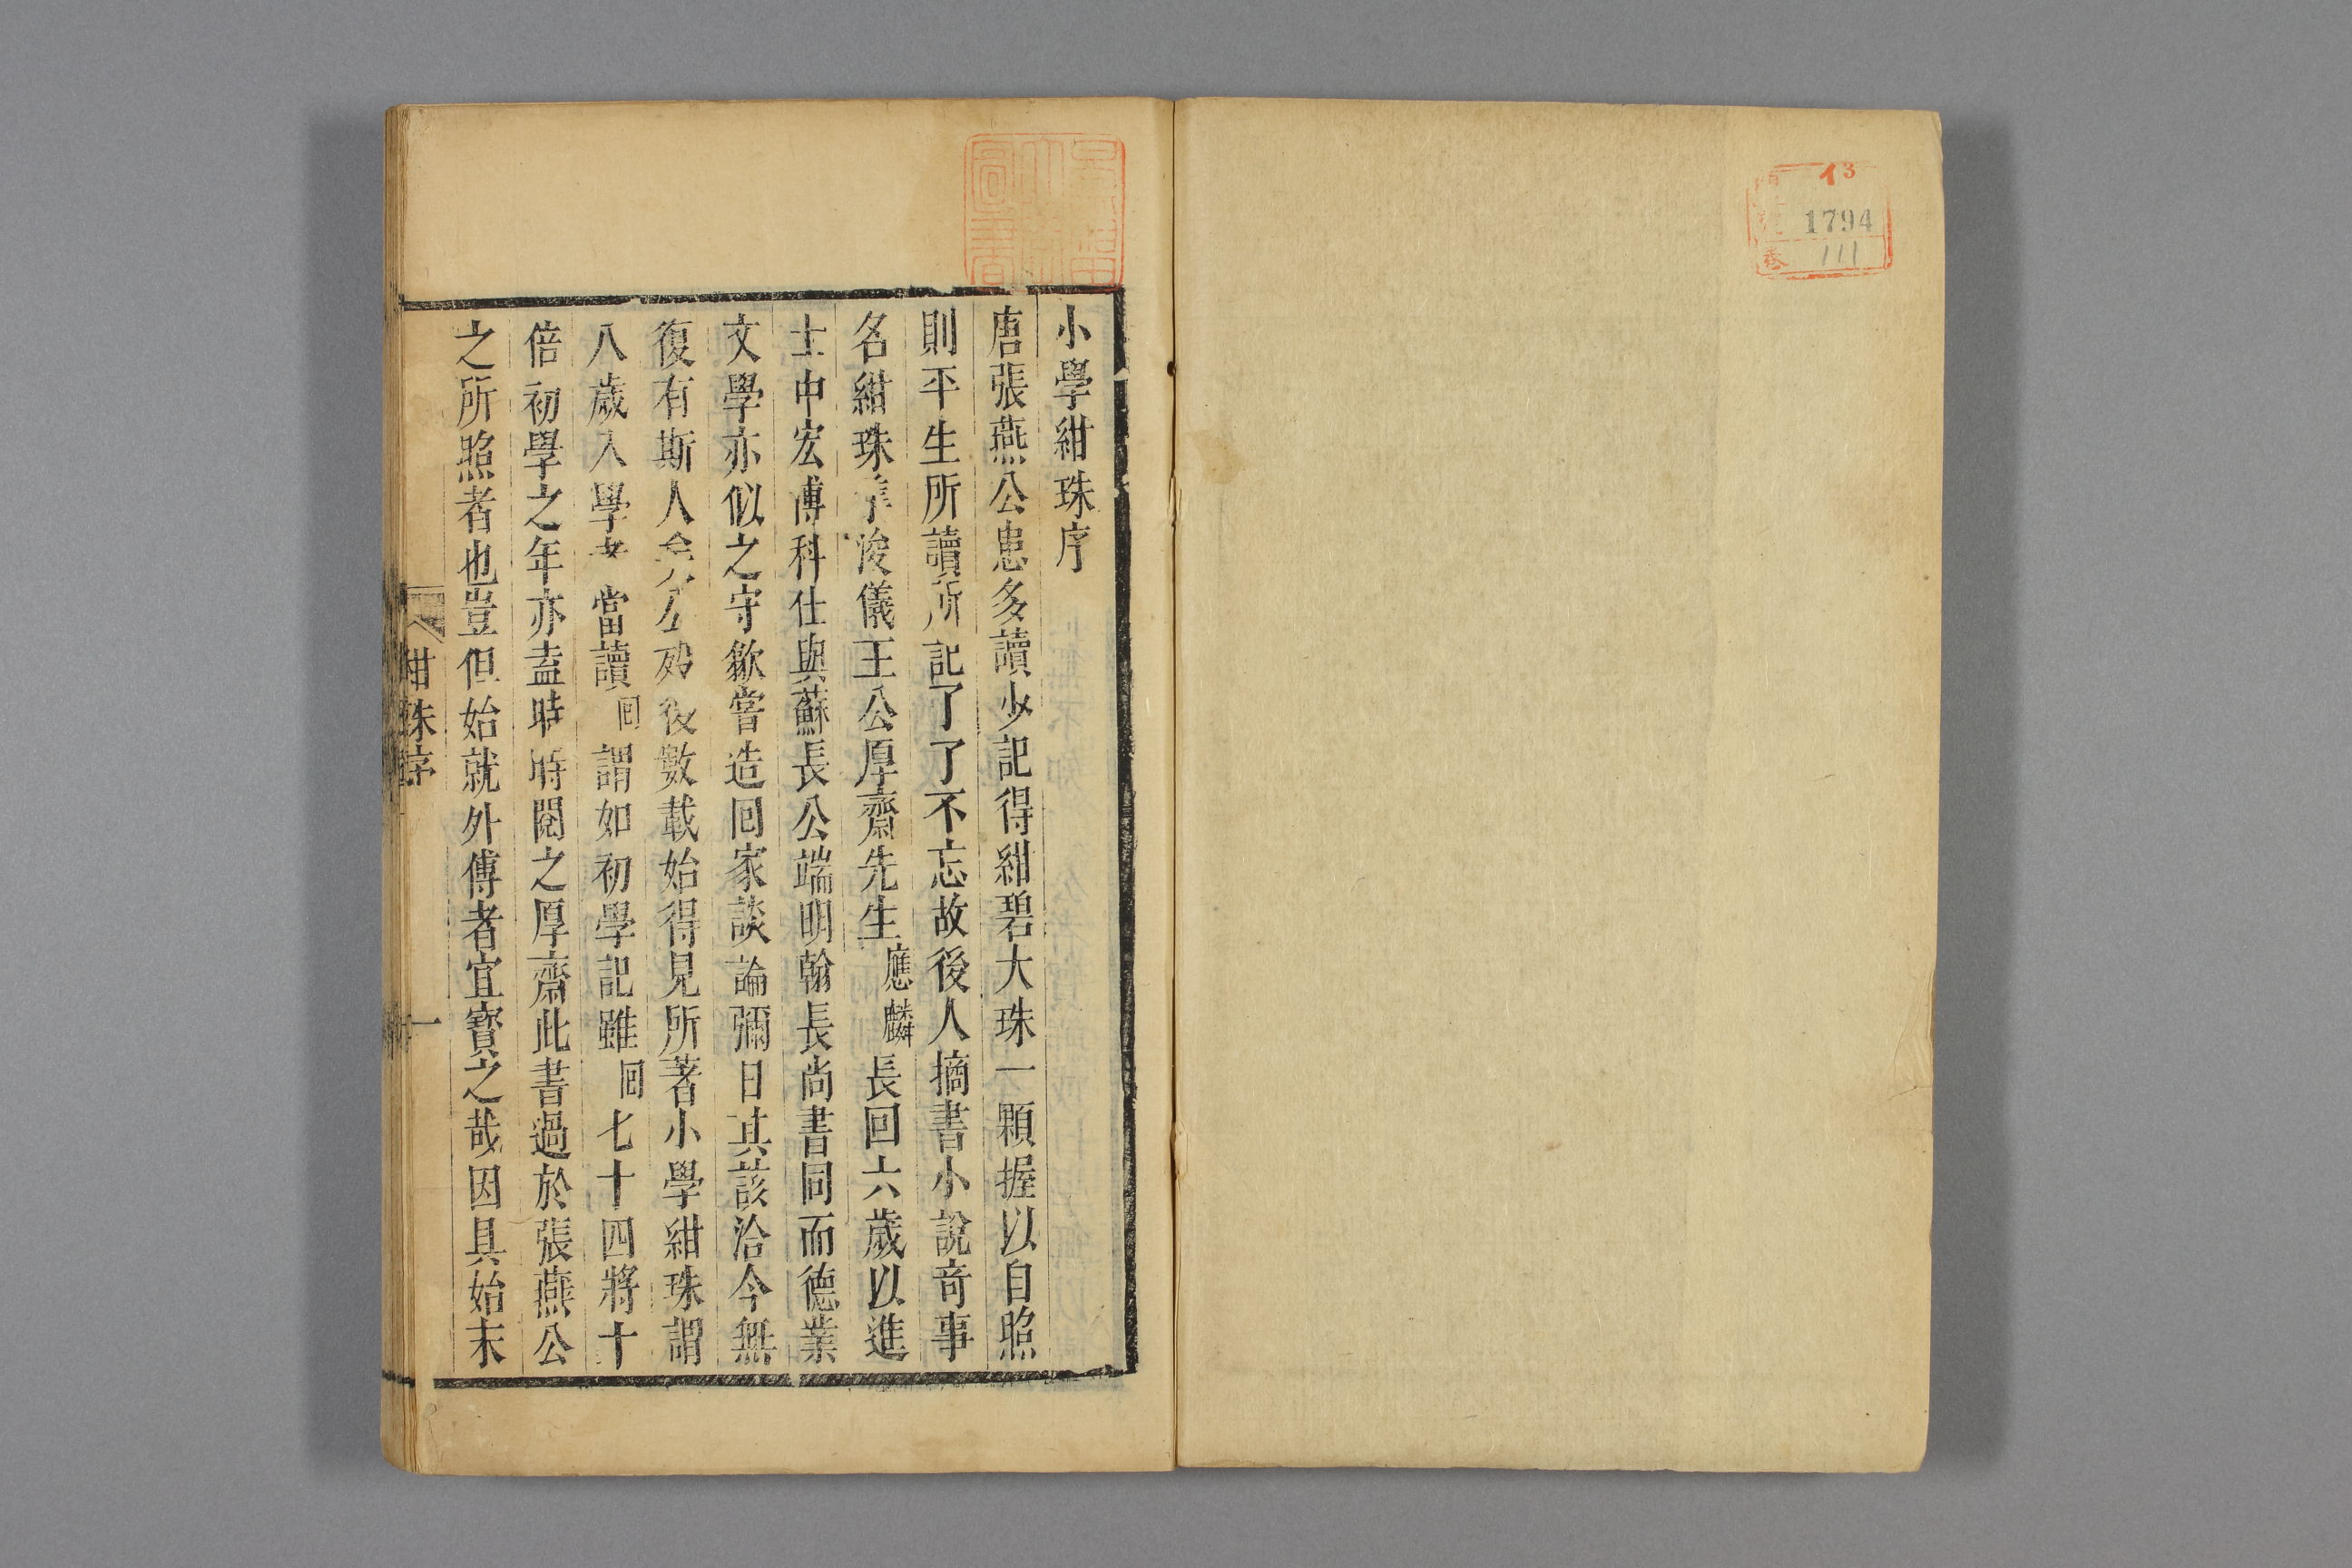 イ3
1794
111
卷
小學紺珠序
唐張燕公患多讀少記得紺碧大珠一顆握以自照
則平生所讀所記了了不忘故後人摘書小說奇事
名紺珠浚儀王公厚齋先生應麟長回六歲以進
士中宏博科仕與蘇長公端明翰長尚書同而德業
文學亦似之守歙嘗造回家談論彌日其該洽今無
復有斯人矣公歿後數載始得見所著小學紺珠謂
八歲入學者當讀回謂如初學記雖回七十四將十
倍初學之年亦盍時時閱之厚齋此書過於張燕公
之所照者也豈但始就外傅者宜寳之哉因具始末
紺珠序
一